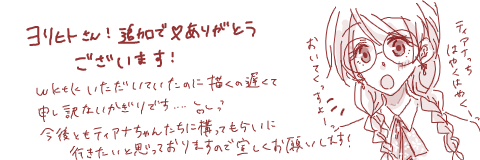 ヨリヒトさん！追加で♡ありがとう
ございます！
wktkいただいていたのに描くの遅くて
申し訳ないかぎりです…
今後ともティアナちゃんたちに構ってもらいに
行きたいと思っておりますので宜しくお願いします！
ティアナっち
はやくはやく
おいてくっすよー